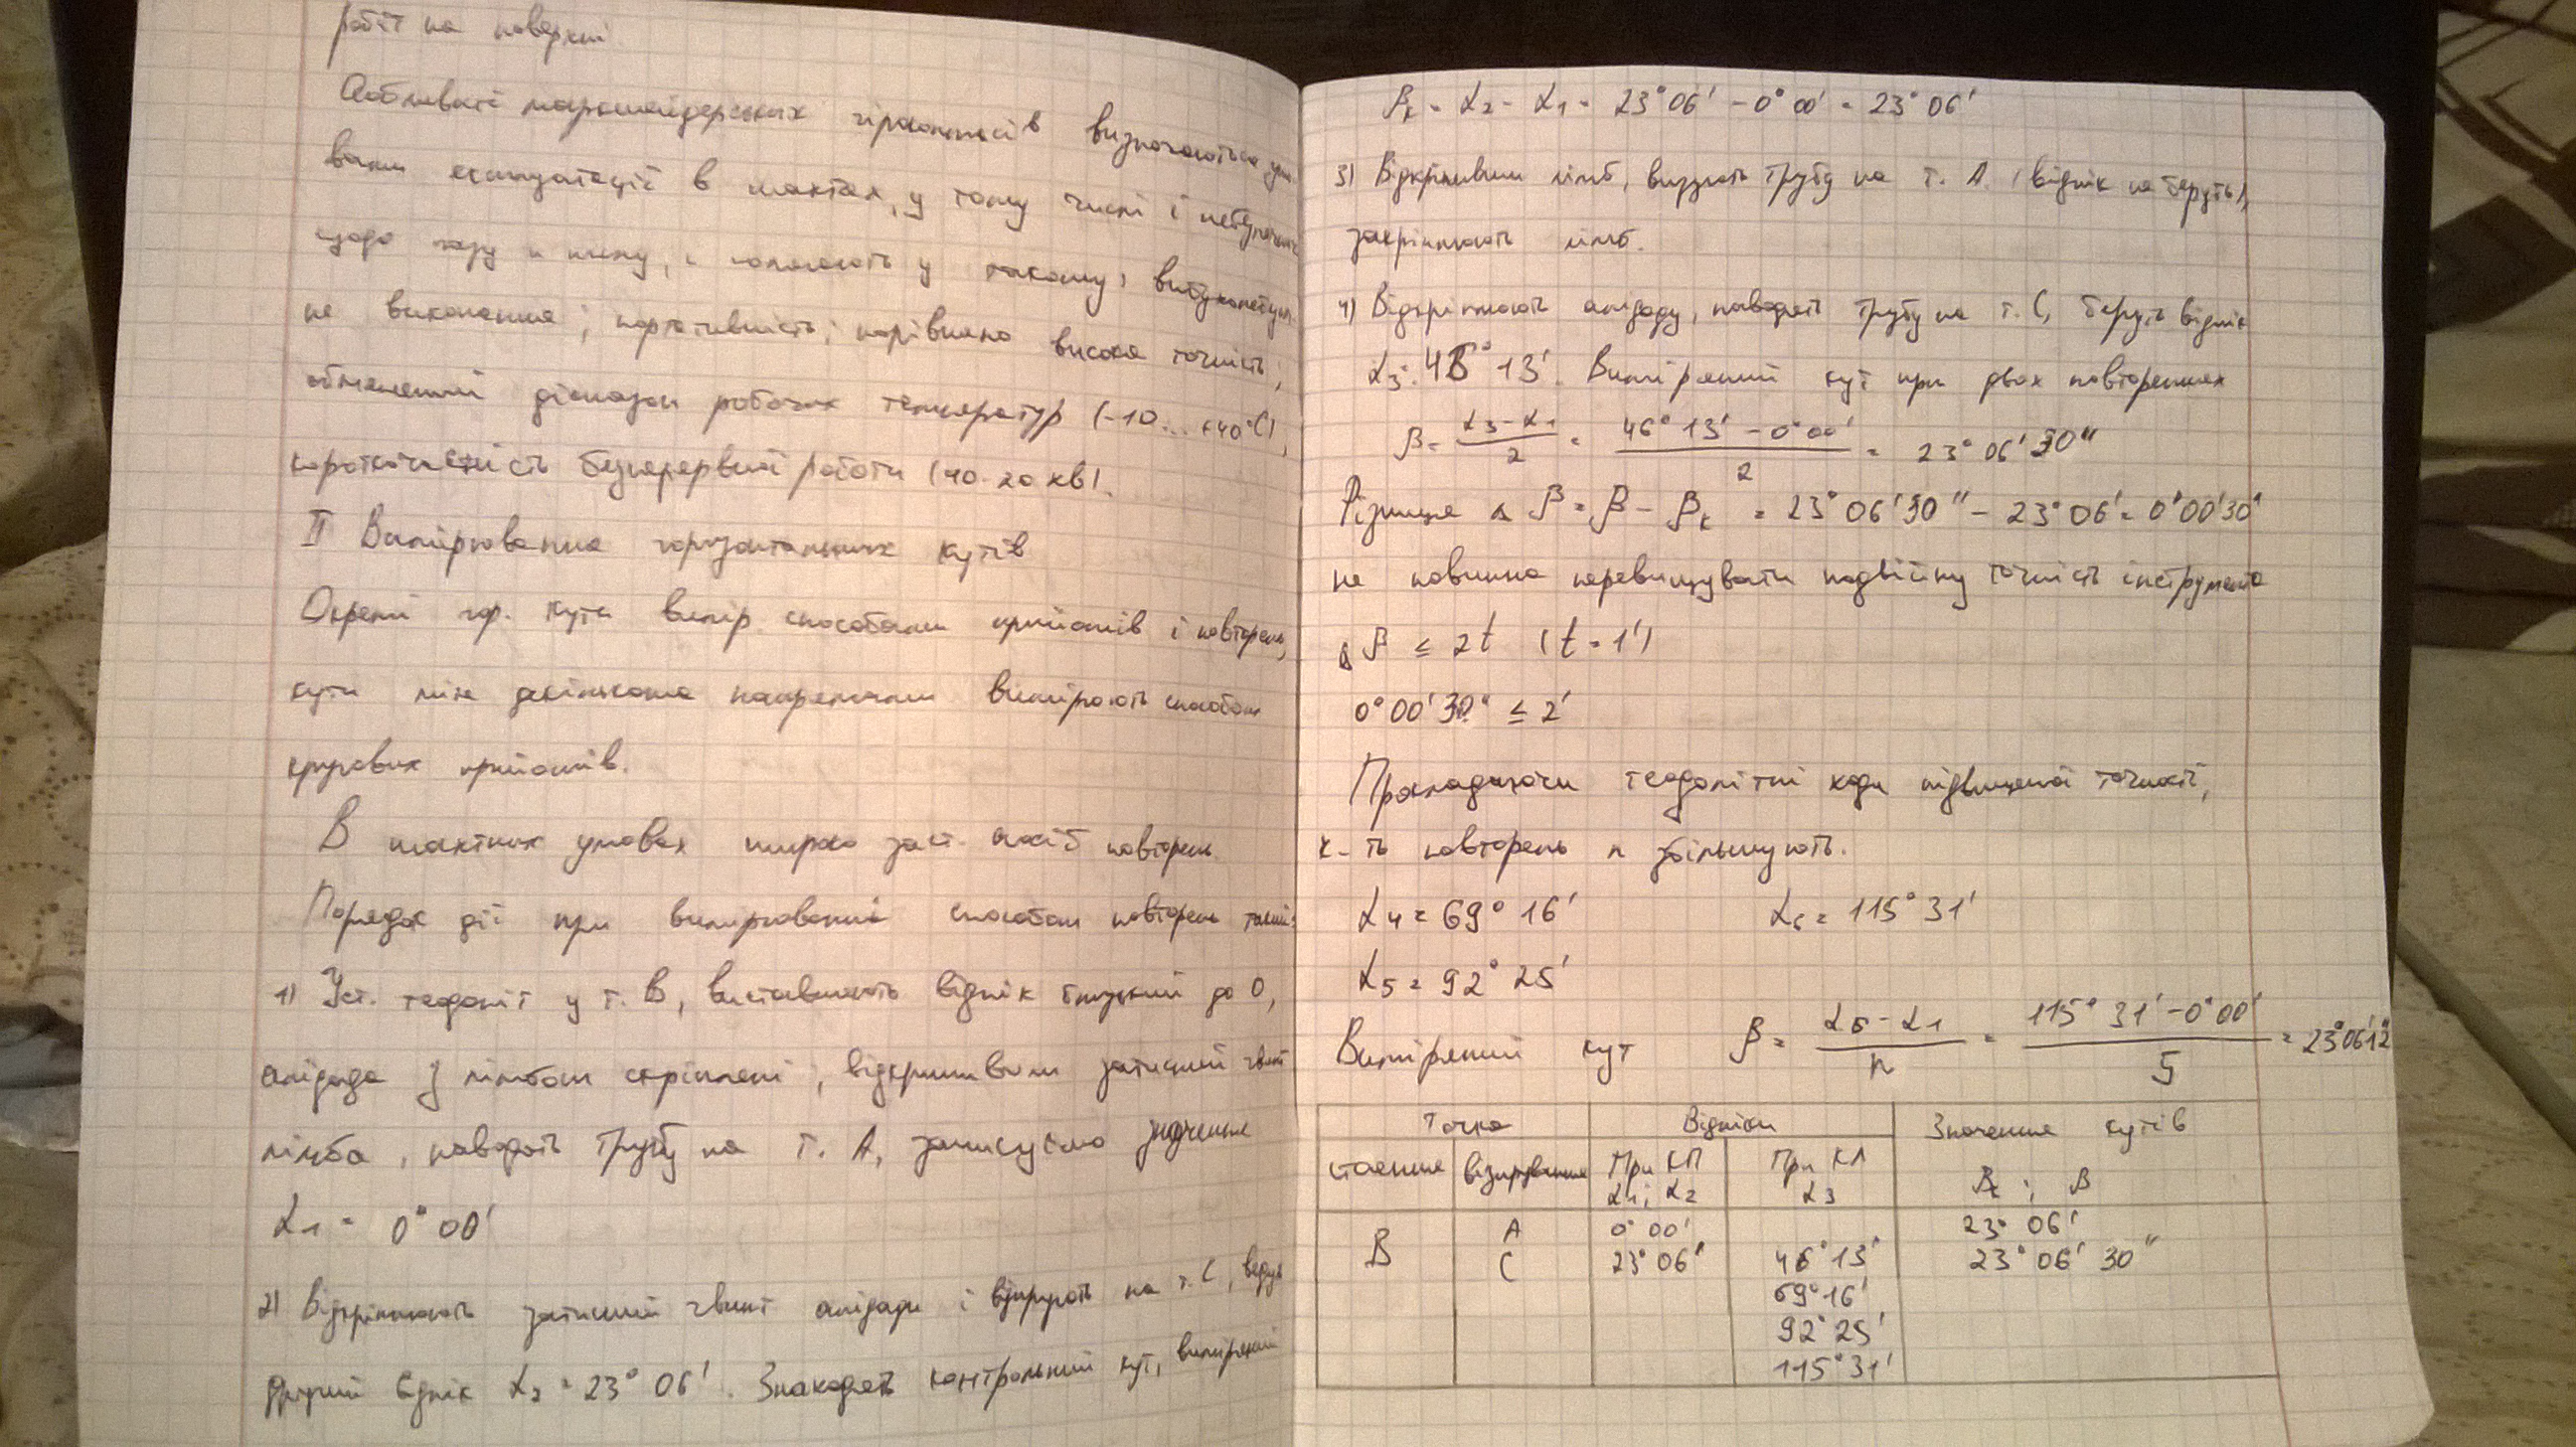 робіт на поверхні
Особливості маркшейдерських гірокомпасів визначаються умо-
вами експлуатації в шахтах, у тому числі і небезпечних
щодо газу и пилу, і полягають у такому: вибухобезпеч-
не виконання; портативність; порівняно висока точність;
обмежений діапазон робочих температур (-10... +40°C),
короткочасність безперервної роботи (10-20 хв).
II Вимірювання горизонтальних кутів
Окремі гор. кути вимір. способами прийомів і повторень,
кути між декількома напрямками вимірюють способом
кругових прийомів.
В шахтних умовах широко заст. спосіб повторень.
Порядок дії при вимірюванні способом повторень такий:
1) Уст. теодоліт у т. В, виставляють відлік близький до 0,
алідада з лімбом скріплені, відкріпивши затискний гвинт
лімба, наводять трубу на т. А, записуємо значення
α₁ = 0°00'
2) Відкріплюють затискний гвинт алідади і візирують на т. С, беруть
другий відлік α₂ = 23°06'. Знаходять контрольний кут, виміряний
βк = α₂ - α₁ = 23°06' - 0°00' = 23°06'
3) Відкріпивши лімб, візують трубу на т. А. (відлік не беруть),
закріплюють лімб.
4) Відкріплюють алідаду, наводять трубу на т. С, беруть відлік
α₃ = 46°13'. Виміряний кут при двох повтореннях
β = (α₃ - α₁)/2 = (46°13' - 0°00')/2 = 23°06'30"
Різниця Δβ = β - βк = 23°06'30" - 23°06' = 0°00'30"
не повинна перевищувати подвійну точність інструмента
Δβ ≤ 2t (t = 1')
0°00'30" ≤ 2'
Прокладаючи теодолітні ходи підвищеної точності,
к-ть повторень n збільшують.
α₄ = 69°16' α₆ = 115°31'
α₅ = 92°25'
Виміряний кут β = (α₆ - α₁)/n = (115°31' - 0°00')/5 = 23°06'12"
Точка Відліки Значення кутів
стояння візирування При КП α₁; α₂ При КЛ α₃ βк; β
В А 0°00' 23°06'
С 23°06' 46°13' 23°06'30"
69°16'
92°25'
115°31'